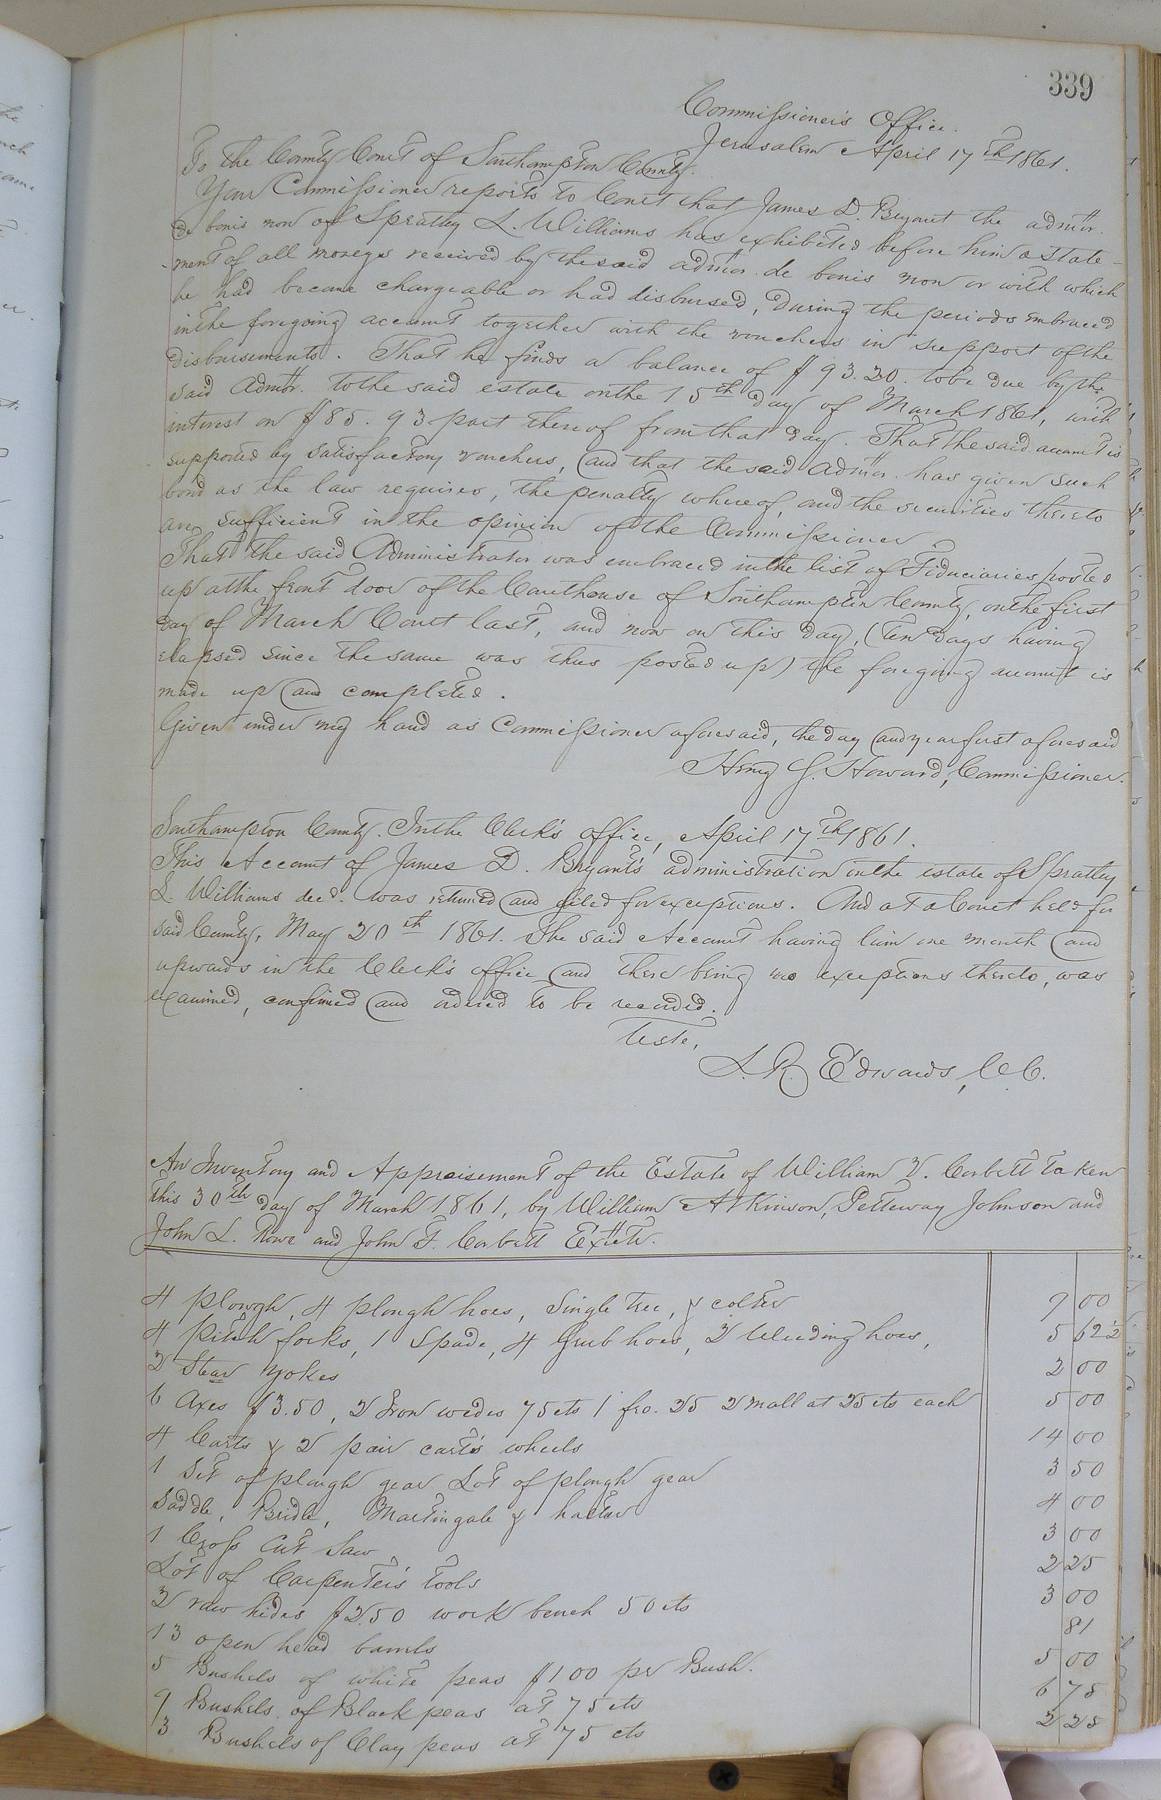 339
Commissioner's Office.
Jerusalem April 17th 1861.
To the County Court of Southampton County.
Your Commissioner reports to Court that James D. Bryant the admtr.
de bonis non of Spratley L. Williams has exhibited before him a state-
ment of all moneys received by the said admtor. de bonis non or with which
he had become chargeable or had disbursed, during the periods embraced
in the foregoing account together with the vouchers in support of the
disbursements. That he finds a balance of $93.20. to be due by the
said Admtr. to the said estate on the 15th day of March 1861, with
interest on $85.93 part thereof from that day. That the said account is
supported by satisfactory vouchers, and that the said Admtr. has given such
bond as the law requires, the penalty whereof, and the securities thereto
are sufficient in the opinion of the Commissioner.
That the said Administrator was embraced in the list of Fiduciaries posted
up at the front door of the Courthouse of Southampton County, on the first
day of March Court last, and now on this day, (Ten days having
elapsed since the same was thus posted up) the foregoing account is
made up and completed.
Given under my hand as Commissioner aforesaid, the day and year first aforesaid
Henry G. Howard, Commissioner.
Southampton County. In the Clerk's office, April 17th 1861.
This Account of James D. Bryant's administration on the estate of Spratley
L. Williams decd. was returned and filed for exceptions. And at a Court held for
said County, May 20th 1861. The said Account having lain one month and
upwards in the Clerk's office and there being no exceptions thereto, was
examined, confirmed and ordered to be recorded.
Teste,
L. R. Edwards, C.C.
An Inventory and Appraisement of the Estate of William V. Corbitt taken
this 30th day of March 1861, by William Atkinson, Petteway Johnson and
John L. Rowe and John F. Corbitt
4 plough, 4 plough hoes, Single tree, & colter 9 00
4 Pitch forks, 1 Spade, 4 Grub hoes, 2 Weeding hoes, 5 62½
2 Stear yokes 2 00
6 Axes $3.50, 2 Iron wedes 75 cts 1 fro. 25 2 mall at 25 cts each 5 00
4 Carts & 2 pair cart's wheels 14 00
1 Set of plough gear Lot of plough gear 3 50
Saddle, Bridle, Martingale & halter 4 00
1 Cross Cut Saw 3 00
Lot of Carpenter's tools 2 25
2 raw hides $2.50 work bench 50 cts 3 00
13 open head barrels 81
5 Bushels of white peas $1 00 per Bush. 5 00
9 Bushels of Black peas at 75 cts 6 75
3 Bushels of Clay peas at 75 cts 2 25